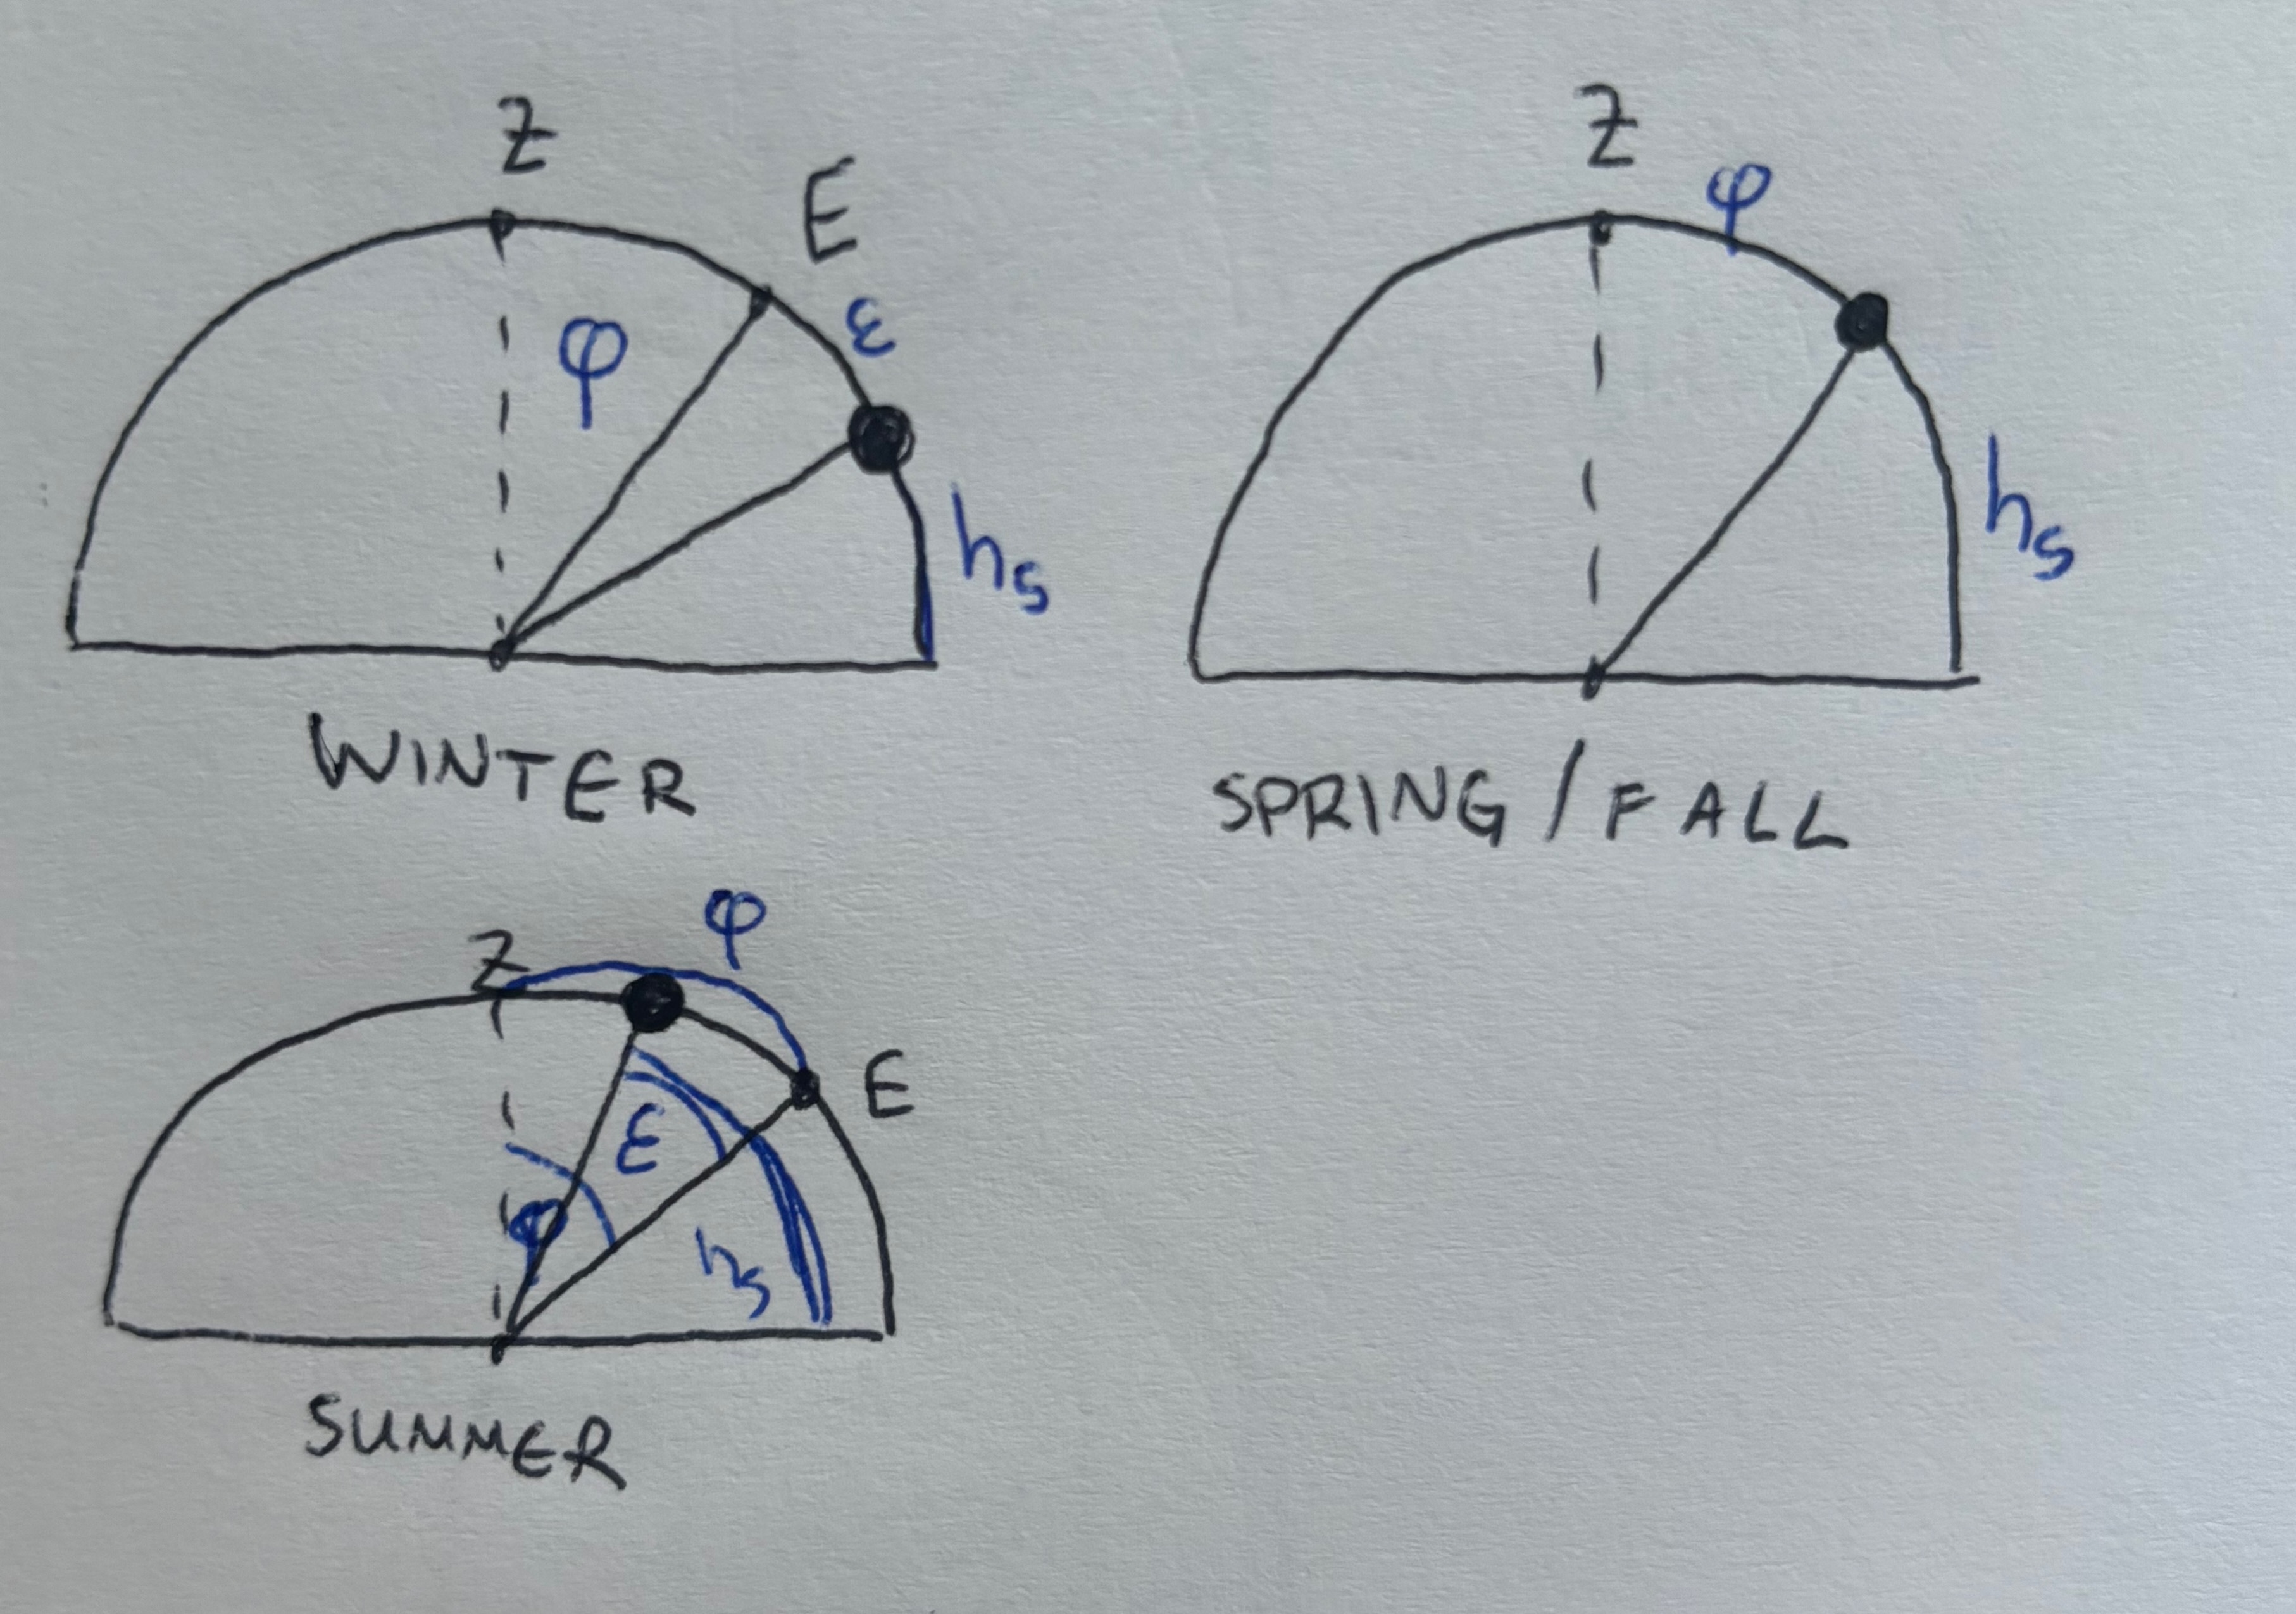 Z
E
φ
ε
hs
WINTER
Z
φ
hs
SPRING / FALL
φ
Z
E
ε
φ
hs
SUMMER